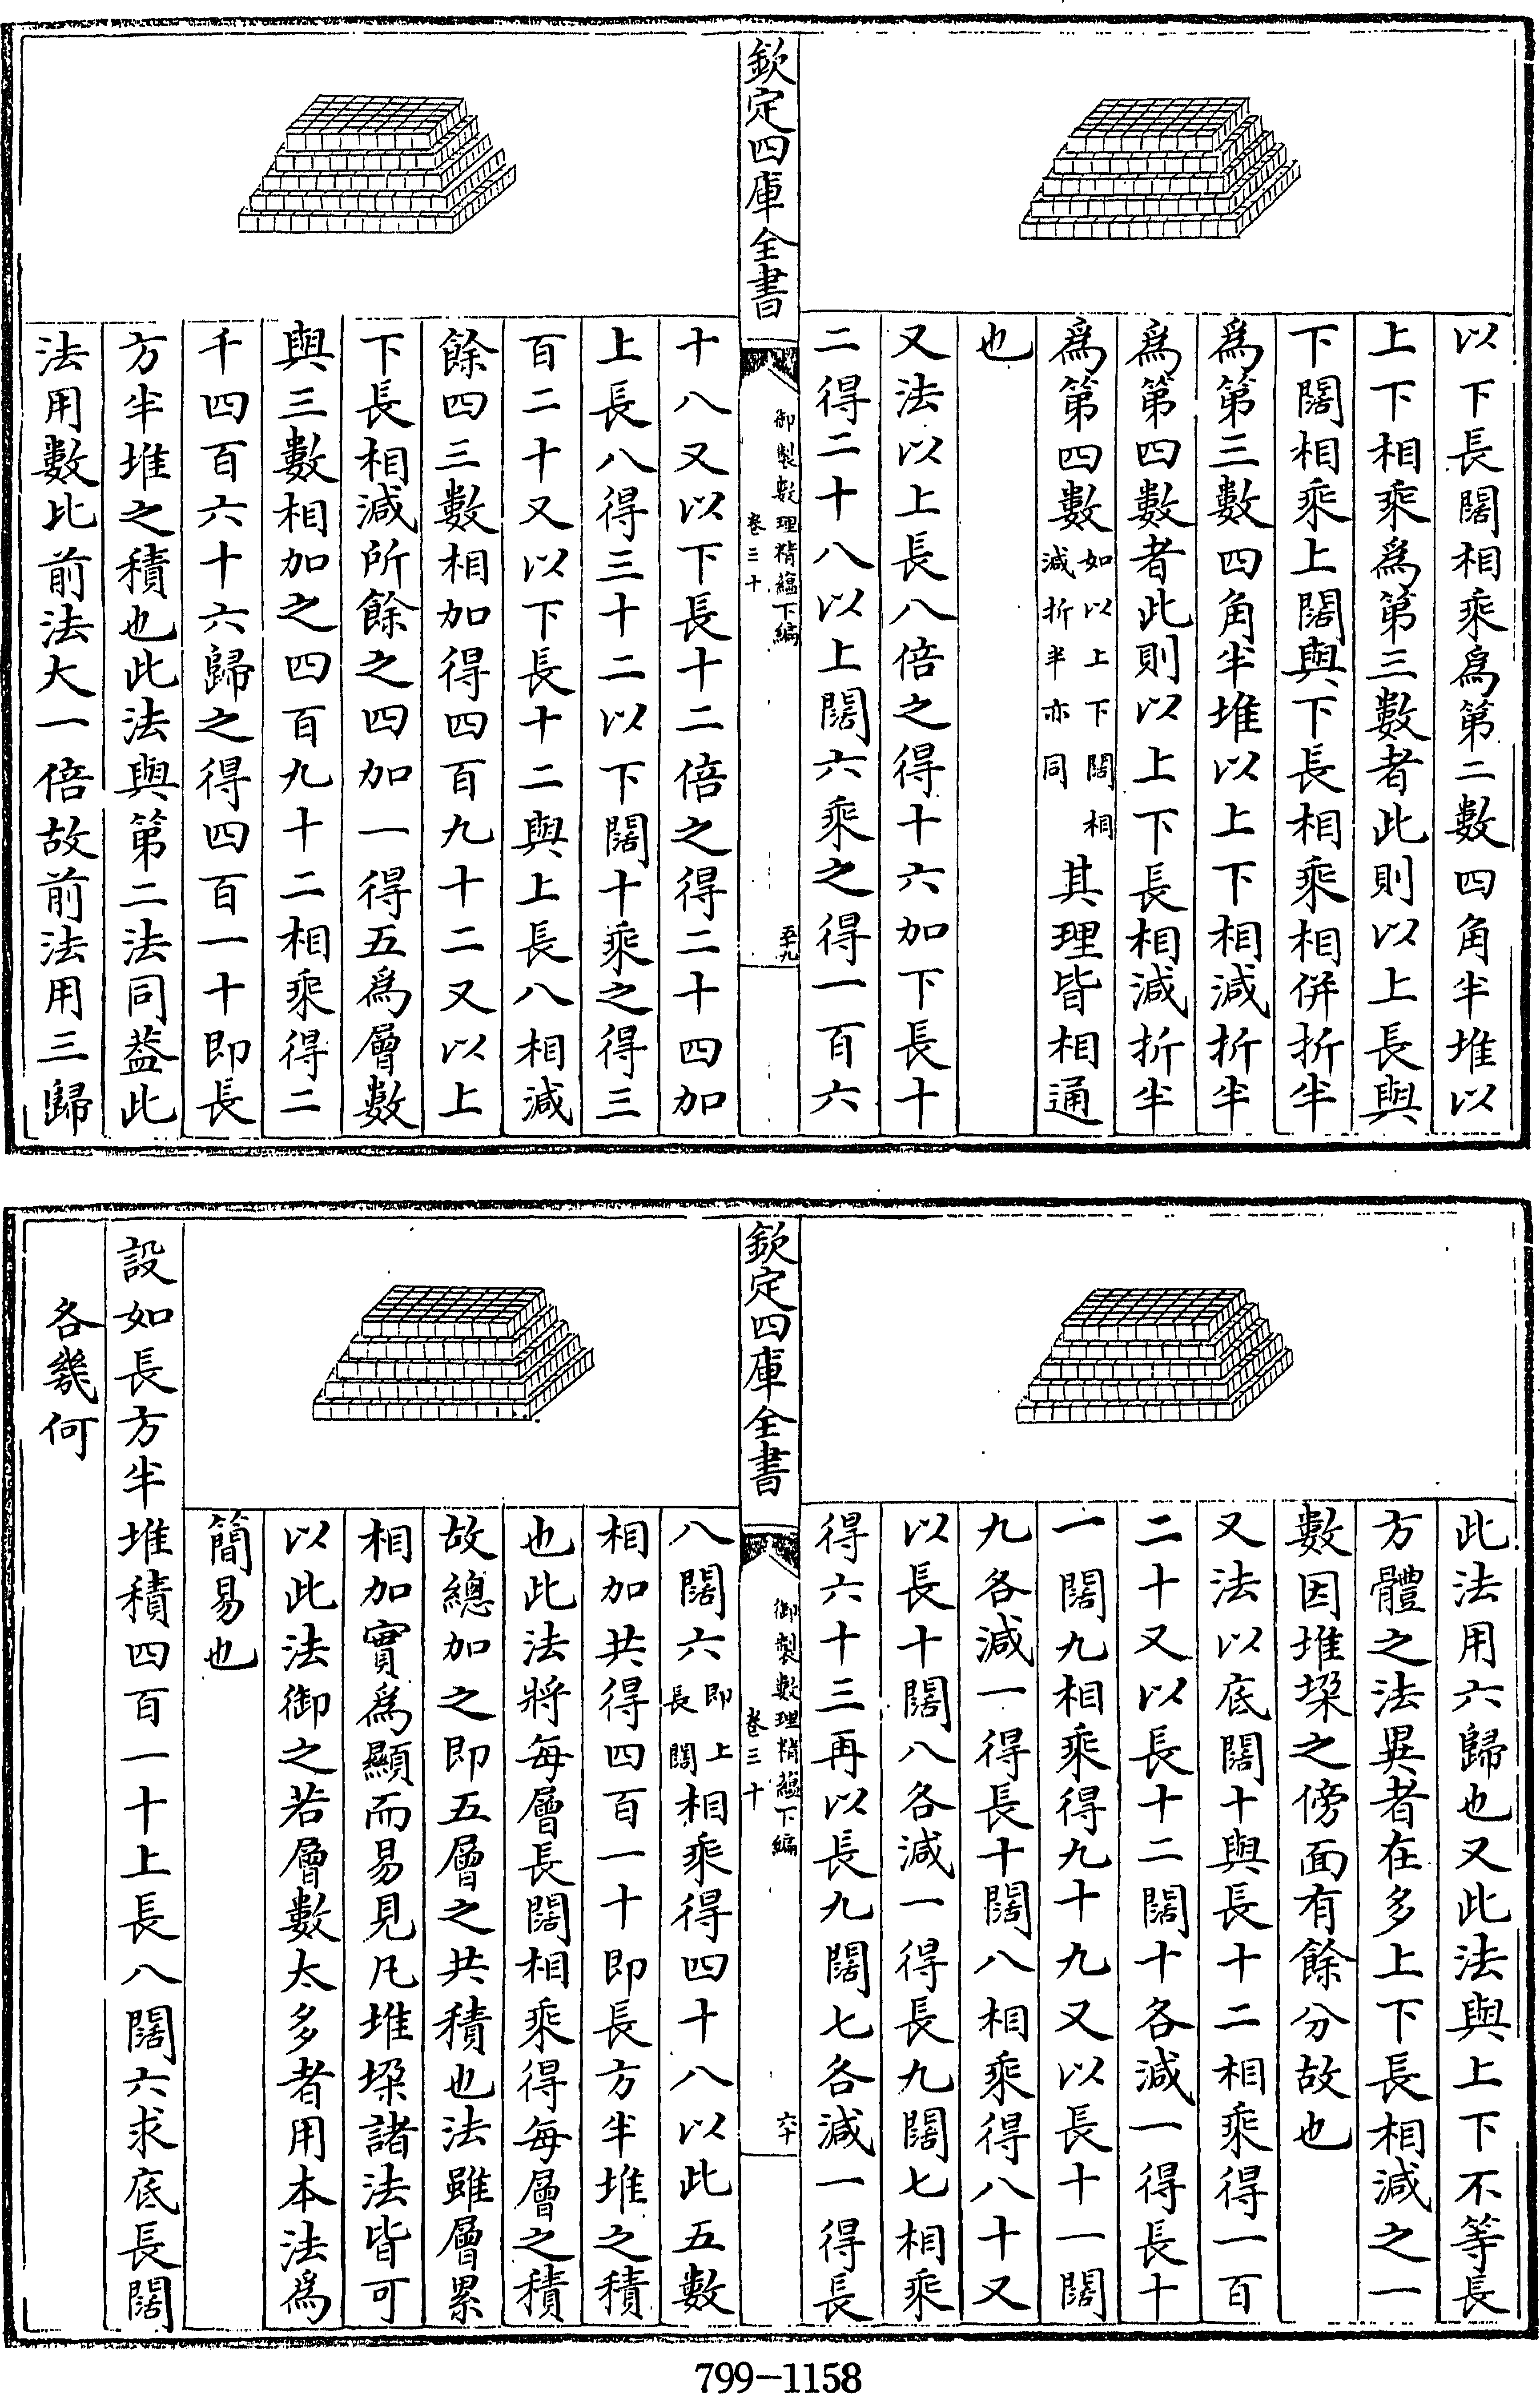 以下長闊相乘爲第二數四角半堆以
上下相乘爲第三數者此則以上長與
下闊相乘上闊與下長相乘相併折半
爲第三數四角半堆以上下相減折半
爲第四數者此則以上下長相減折半
爲第四數如以上下闊相減折半亦同其理皆相通
也
又法以上長八倍之得十六加下長十
二得二十八以上闊六乘之得一百六
欽定四庫全書
御製數理精蘊下編
卷三十
五十九
十八又以下長十二倍之得二十四加
上長八得三十二以下闊十乘之得三
百二十又以下長十二與上長八相減
餘四三數相加得四百九十二又以上
下長相減所餘之四加一得五爲層數
與三數相加之四百九十二相乘得二
千四百六十六歸之得四百一十即長
方半堆之積也此法與第二法同葢此
法用數比前法大一倍故前法用三歸
此法用六歸也又此法與上下不等長
方體之法異者在多上下長相減之一
數因堆垜之傍面有餘分故也
又法以底闊十與長十二相乘得一百
二十又以長十二闊十各減一得長十
一闊九相乘得九十九又以長十一闊
九各減一得長十闊八相乘得八十又
以長十闊八各減一得長九闊七相乘
得六十三再以長九闊七各減一得長
欽定四庫全書
御製數理精蘊下編
卷三十
六十
八闊六即上長闊相乘得四十八以此五數
相加共得四百一十即長方半堆之積
也此法將每層長闊相乘得每層之積
故總加之即五層之共積也法雖層累
相加實爲顯而易見凡堆垜諸法皆可
以此法御之若層數太多者用本法爲
簡易也
設如長方半堆積四百一十上長八闊六求底長闊
各幾何
799-1158